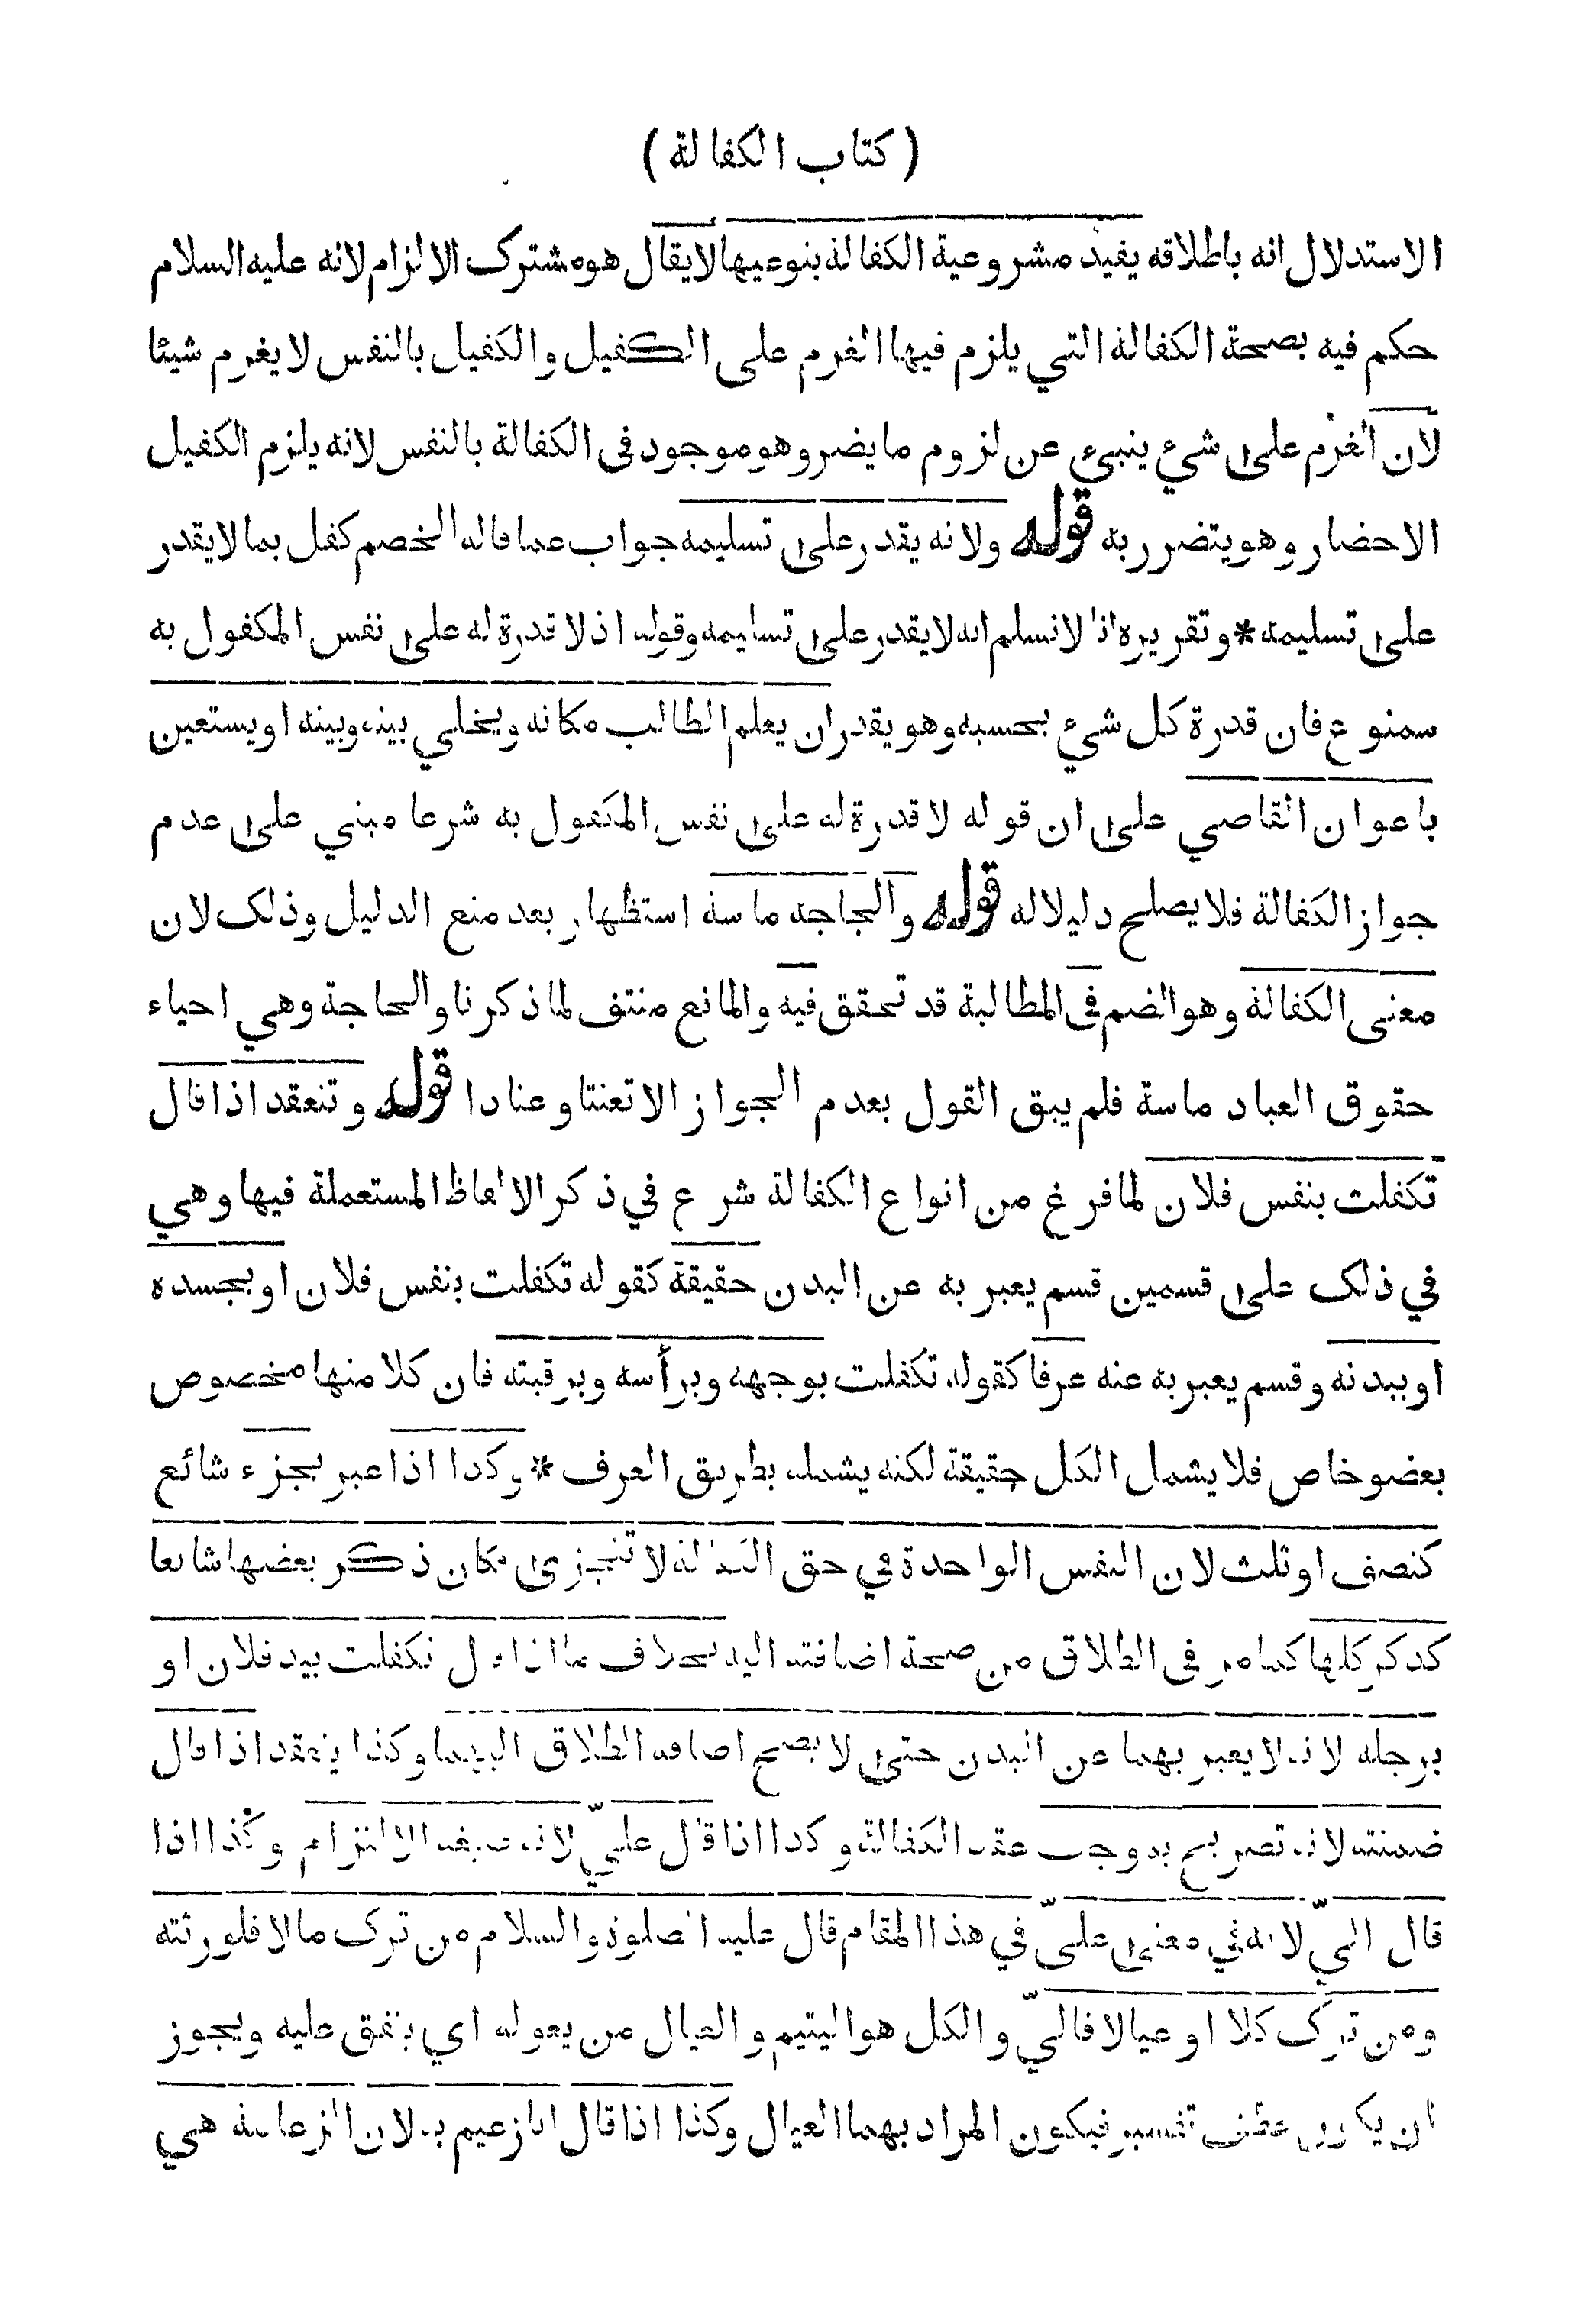 ( كتاب الكفالة )
الاستدلال انه باطلاقه يفيد مشروعية الكفالة بنوعيها لايقال هو مشترك الالزام لانه عليه السلام
حكم فيه بصحة الكفالة التي يلزم فيها الغرم على الكفيل والكفيل بالنفس لايغرم شيئا
لان الغرم على شيء ينبيء عن لزوم مايضر وهو موجود فى الكفالة بالنفس لانه يلزم الكفيل
الاحضار وهو يتضرر به قوله ولانه يقدر على تسليمه جواب عما قاله الخصم كفل بما لايقدر
على تسليمه * وتقريره انا لانسلم انه لايقدر على تسليمه وقوله اذ لا قدرة له على نفس المكفول به
ممنوع فان قدرة كل شيء بحسبه وهو يقدر ان يعلم الطالب مكانه ويخلي بينه وبينه او يستعين
باعوان القاضي على ان قوله لا قدرة له على نفس المكفول به شرعا مبني على عدم
جواز الكفالة فلايصلح دليلا له قوله والحاجه ماسة استظهار بعد منع الدليل وذلك لان
معنى الكفالة وهو الضم فى المطالبة قد تحقق فيه والمانع منتف لما ذكرنا والحاجة وهي احياء
حقوق العباد ماسة فلم يبق القول بعدم الجواز الا تعنتا وعنادا قوله وتنعقد اذا قال
تكفلت بنفس فلان لما فرغ من انواع الكفالة شرع في ذكر الالفاظ المستعملة فيها وهي
في ذلك على قسمين قسم يعبر به عن البدن حقيقة كقوله تكفلت بنفس فلان او بجسده
او ببدنه وقسم يعبر به عنه عرفا كقوله تكفلت بوجهه وبرأسه وبرقبته فان كلا منها مخصوص
بعضو خاص فلايشمل الكل حقيقة لكنه يشمله بطريق العرف * وكذا اذا عبر بجزء شائع
كنصف او ثلث لان النفس الواحدة في حق الكفالة لا تتجزى فكان ذكر بعضها شائعا
كذكر كلها كما مر فى الطلاق من صحة اضافته اليه بخلاف ما اذا قال تكفلت بيد فلان او
برجله لانه لايعبر بهما عن البدن حتى لا يصح اضافة الطلاق اليهما وكذا ينعقد اذا قال
ضمنته لانه تصريح بموجب عقد الكفالة وكذا اذا قال عليّ لانه صيغة الالتزام وكذا اذا
قال اليّ لانه في معنى عليّ في هذا المقام قال عليه الصلوة والسلام من ترك مالا فلورثته
ومن ترك كلا او عيالا فاليّ والكل هو اليتيم والعيال من يعوله اي ينفق عليه ويجوز
ان يكون عطف تفسير فيكون المراد بهما العيال وكذا اذا قال انا زعيم به لان الزعامة هي